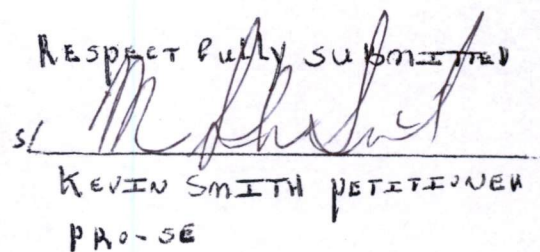 Respectfully submitted
s/
Kevin Smith petitioner
pro-se